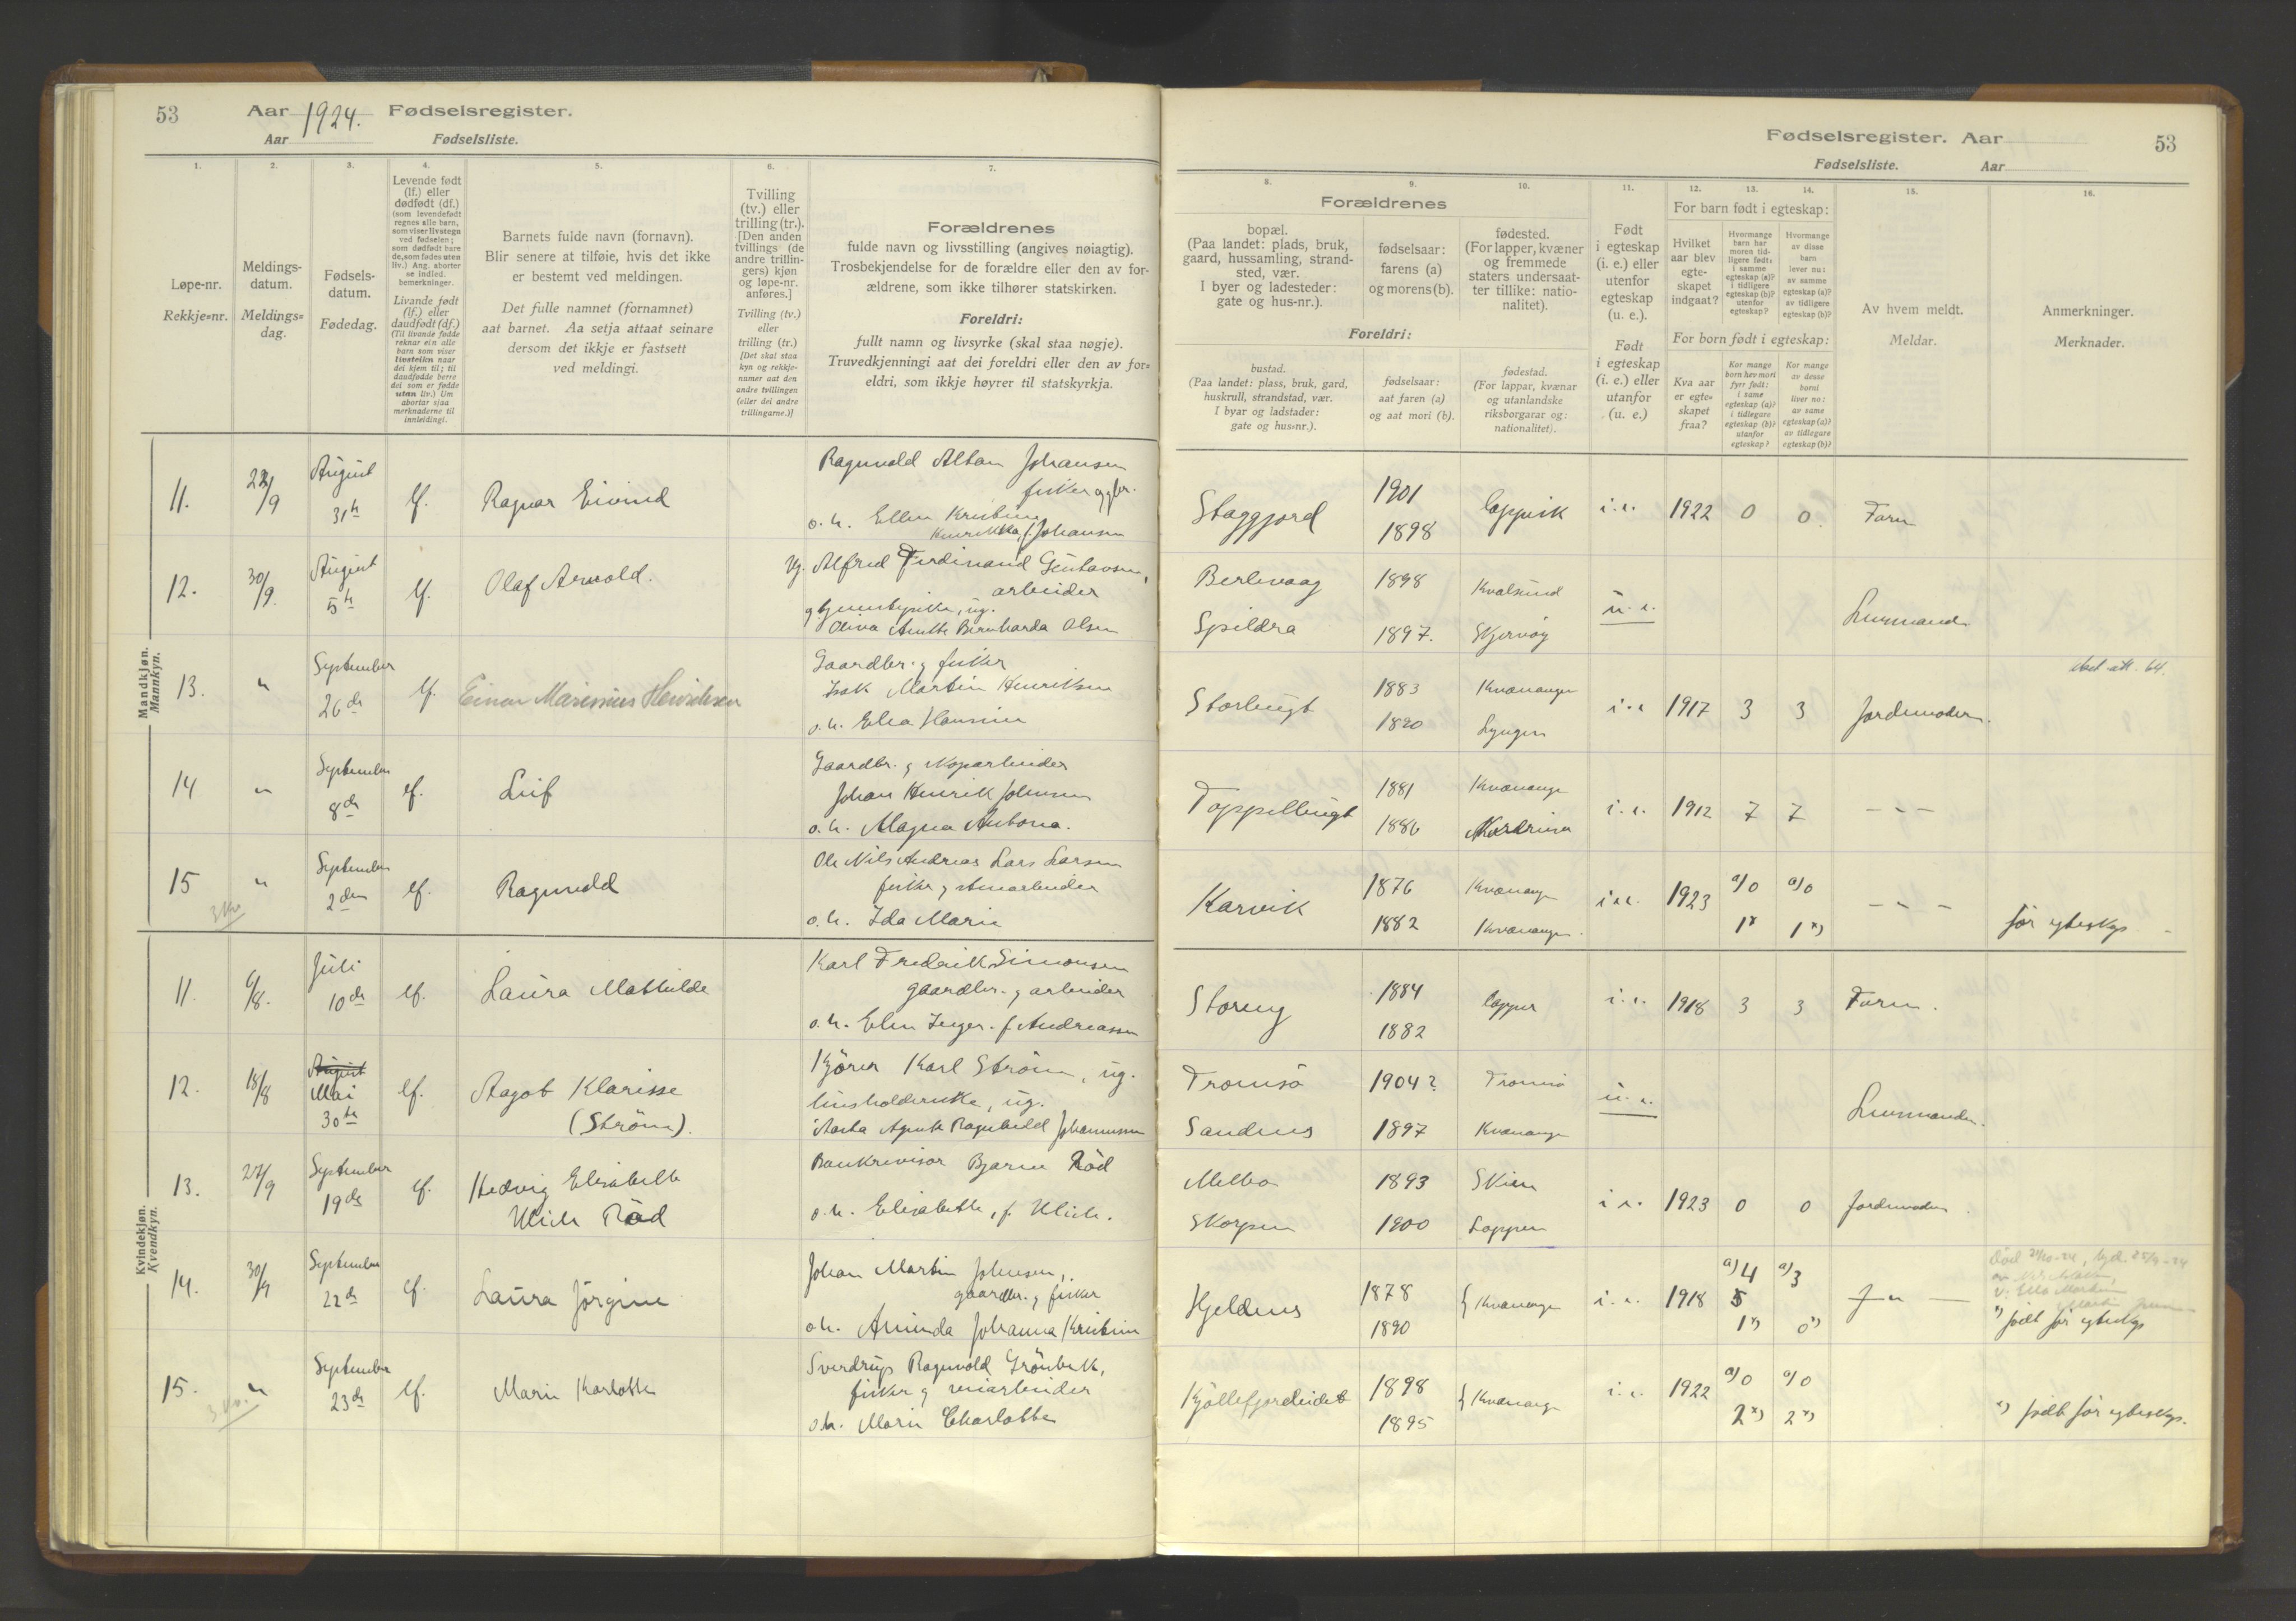 53 Aar 1924. Fødselsregister.
Aar Fødselsliste.
1.
2.
3.
4.
5.
6.
7.
Løpe-nr.
Rekkje-nr.
Meldings-
datum.
Meldings-
dag.
Fødsels-
datum.
Fødedag.
Levende født
(lf.) eller
dødfødt (df.)
(som levendefødt
regnes alle barn,
som viser livstegn
ved fødselen;
som dødfødt bare
de, som fødes uten
liv.) Ang. aborter
se indled.
bemerkninger.
Livande født
(lf.) eller
daudfødt (df.)
(Til livande fødde
reknar ein alle
barn som viser
livsteikn naar
dei kjem til; til
daudfødde berre
dei som er fødde
utan liv.) Um
abortar sjaa
merknaderne til
innleidingi.
Barnets fulde navn (fornavn).
Blir senere at tilføie, hvis det ikke
er bestemt ved meldingen.
Det fulle namnet (fornamnet)
aat barnet. Aa setja attaat seinare
dersom det ikkje er fastsett
ved meldingi.
Tvilling
(tv.) eller
trilling (tr.).
[Den anden
tvillings (de
andre trillin-
gers) kjøn
og løpe-nr.
anføres.]
Tvilling (tv.)
eller
trilling (tr.)
[Det skal staa
kyn og rekkje-
numer aat den
andre tvillingen
(eller dei andre
trillingarne.)]
Forældrenes
fulde navn og livsstilling (angives nøiagtig).
Trosbekjendelse for de forældre eller den av for-
ældrene, som ikke tilhører statskirken.
Foreldri:
fullt namn og livsyrke (skal staa nøgje).
Truvedkjenningi aat dei foreldri eller den av for-
eldri, som ikkje høyrer til statskyrkja.
Mandkjøn.
Mannkyn.
11. 22/9 August 31te lf. Ragnar Eivind
Ragnvald Altan Johansen
fisker og gbr.
o.h. Ellen Kristine
Henrikka, f. Johansen
12. 30/9. August 5te lf. Olaf Arnold.
Ug. Alfred Ferdinand Gustavsen,
arbeider
ug.
Oliva Anette Bernharda Olsen
13. " September 26de lf. Einar Marenius Henriksen
Gaardbr. og fisker
Isak Martin Henriksen
o.h. Elea Hansine
14 " September 8de lf. Leif
Gaardbr. og
Johan Henrik Johnsen
o.h. Magna Antona.
15 " September 2den lf. Ragnvald
3 Kv.
Ole Nils Andreas Lars Larsen
fisker og
o.h. Ida Marie
Kvindekjøn.
Kvendkyn.
11. 6/8. Juli 10de lf. Laura Mathilde
Karl Fredrik Simonsen
gaardbr. og arbeider
o.h. Elen Inger. f. Andreassen
12. 18/8 August Mai 30te lf. Aagot Klarisse
(Ström).
Kjörer Karl Ström, ug.
husholderske, ug.
Agnete Ragnhild Johannessen
13. 27/9 September 19de lf. Hedvig Elisabeth
Ulich Röd
Bankrevisor Bjarne Röd
o.h. Elisabeth, f. Ulich.
14. 30/9 September 22de lf. Laura Jörgine
Johan Martin Johnsen,
gaardbr. og fisker
o.h. Aminda Johanna Kristine
15. " September 23de lf. Marie Karlotte
Sverdrup Ragnvald Grönbek,
fisker og
o.h. Marie Charlotte
Fødselsregister. Aar 53
Fødselsliste. Aar
8.
9.
10.
11.
12.
13.
14.
15.
16.
Forældrenes
bopæl.
(Paa landet: plads, bruk,
gaard, hussamling, strand-
sted, vær.
I byer og ladesteder:
gate og hus-nr.).
fødselsaar:
farens (a)
og morens (b).
fødested.
(For lapper, kvæner
og fremmede
staters undersaat-
ter tillike: natio-
nalitet).
Foreldri:
bustad.
(Paa landet: plass, bruk, gard,
huskrull, strandstad, vær.
I byar og ladstader:
gate og hus-nr.).
fødselsaar:
aat faren (a)
og aat mori (b).
fødestad.
(For lappar, kvænar
og utanlandske
riksborgarar og:
nationalitet).
Født
i egteskap
(i. e.) eller
utenfor
egteskap
(u. e.).
Født
i egteskap
(i. e.) eller
utanfor
(u. e.)
For barn født i egteskap:
Hvilket
aar blev
egte-
skapet
indgaat?
Hvormange
barn har
moren tid-
ligere født:
i samme
egteskap (a)?
i tidligere
egteskap (b)?
utenfor
egteskap?
Hvormange
av disse
barn
lever nu:
av samme
egteskap (a)?
av tidligere
egteskap (b)?
For born født i egteskap:
Kva aar
er egte-
skapet
fraa?
Kor mange
born hev mori
fyrr født:
i same
egteskap (a)?
i tidlegare
egteskap (b)?
utanfor
egteskap?
Kor mange
av desse
borni
liver no:
av same
egteskap (a)?
av tidlegare
egteskap (b)?
Av hvem meldt.
Meldar.
Anmerkninger.
Merknader.
Staggjord 1901 1898 Loppvik i.e. 1922 0 0. Faren
Berlevaag 1898 Kvalsund
Spildra 1897. Skjervöy u.e. Lensmanden
Storbugt 1883 Kvænangen
1890 Lyngen
i.e. 1917 3 3 Jordmoderen. 64.
Toppelbugt 1881 Kvænangen
1886
i.e. 1912 7 7 - " -
Karvik 1876 Kvænangen
1882 Kvænangen.
i.e. 1923 a) 0 a) 0
1x 1x) - " - før egteskap
1884 Loppen
1882
i.e. 1918 3 3 Faren.
Tromsö 1904? Tromsö
Sandnes 1897 Kvænangen
u.e. Lensmanden.
Melbo 1893 Skien
Skorpen 1900 Loppen
i.e. 1923 0 0 Jordmoderen.
Hjeldnes 1878 1890 } Kvænangen i.e. 1918 a) 4 a) 3
5
1x) 0x)
x) födt før egteskap
Kjöllefjordeidet 1898 1895 } Kvænangen i.e. 1922 a) 0 a) 0
2x) 2x)
x) födt før egteskap.